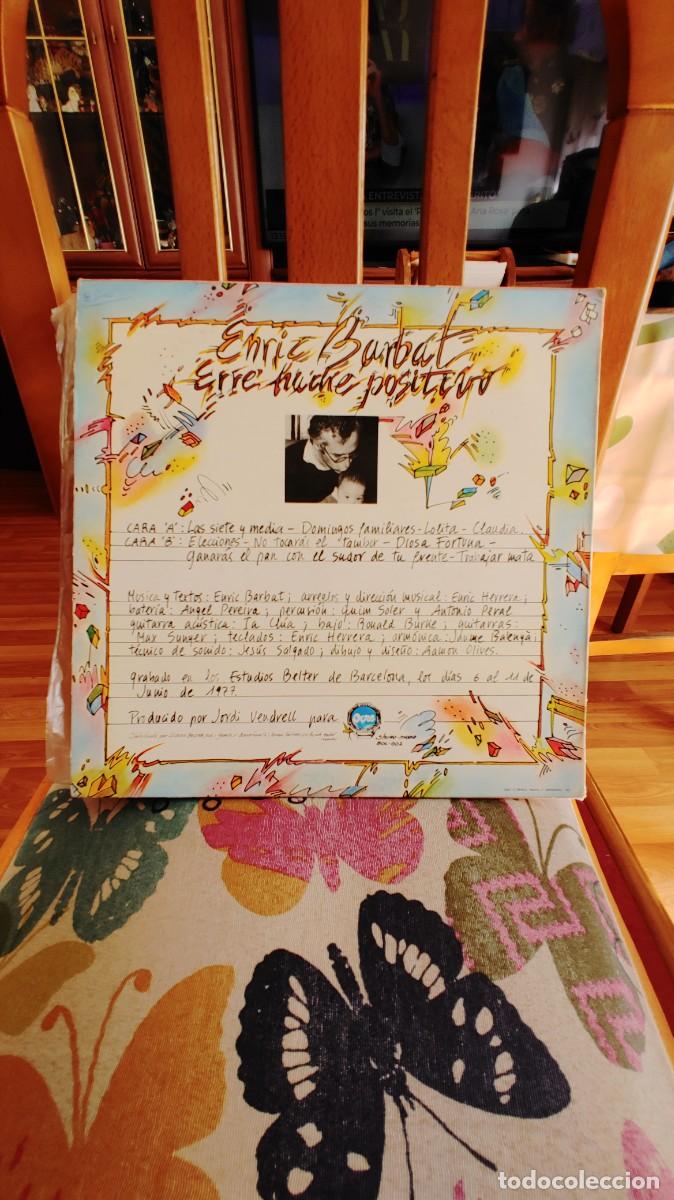 ENTREVIST
visita el
Ana Rosa
sus memorias
Enric Barbat
Erre hache positivo
CARA "A": Las siete y media - Domingos familiares - Lolita - Claudia.
CARA "B": Elecciones - No tocarás el tambor - Diosa Fortuna -
Ganarás el pan con el sudor de tu frente - Trabajar mata
Musica y Textos: Enric Barbat; arreglos y dirección musical: Enric Herrera;
batería: Angel Pereira; percusión: Quim Soler y Antonio Peral
guitarra acústica: Ia Clua; bajo: Ronald Burke; guitarras:
Max Sunyer; teclados: Enric Herrera; armónica: Jaume Balenyà;
técnico de sonido: Jesús Salgado; dibujo y diseño: Ramon Olives.
grabado en los Estudios Belter de Barcelona, los días 6 al 11 de
Junio de 1977.
Producido por Jordi Vendrell para
Ocre
todocoleccion